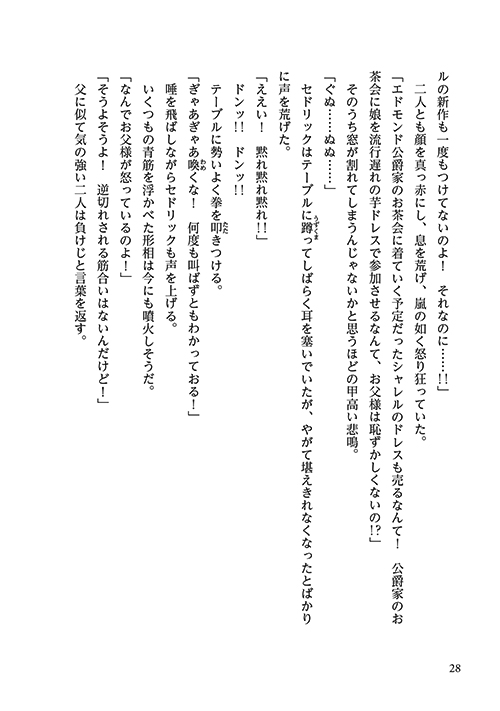 ルの新作も一度もつけてないのよ！　それなのに……!!」
　二人とも顔を真っ赤にし、息を荒げ、嵐の如く怒り狂っていた。
「エドモンド公爵家のお茶会に着ていく予定だったシャレルのドレスも売るなんて！　公爵家のお
茶会に娘を流行遅れの芋ドレスで参加させるなんて、お父様は恥ずかしくないの!?」
　そのうち窓が割れてしまうんじゃないかと思うほどの甲高い悲鳴。
「ぐぬ……ぬぬ……」
　セドリックはテーブルに蹲ってしばらく耳を塞いでいたが、やがて堪えきれなくなったとばかり
に声を荒げた。
「ええい！　黙れ黙れ黙れ!!」
　ドンッ!!　ドンッ!!
　テーブルに勢いよく拳を叩きつける。
「ぎゃあぎゃあ喚くな！　何度も叫ばずともわかっておる！」
　唾を飛ばしながらセドリックも声を上げる。
　いくつもの青筋を浮かべた形相は今にも噴火しそうだ。
「なんでお父様が怒っているのよ！」
「そうよそうよ！　逆切れされる筋合いはないんだけど！」
　父に似て気の強い二人は負けじと言葉を返す。
28